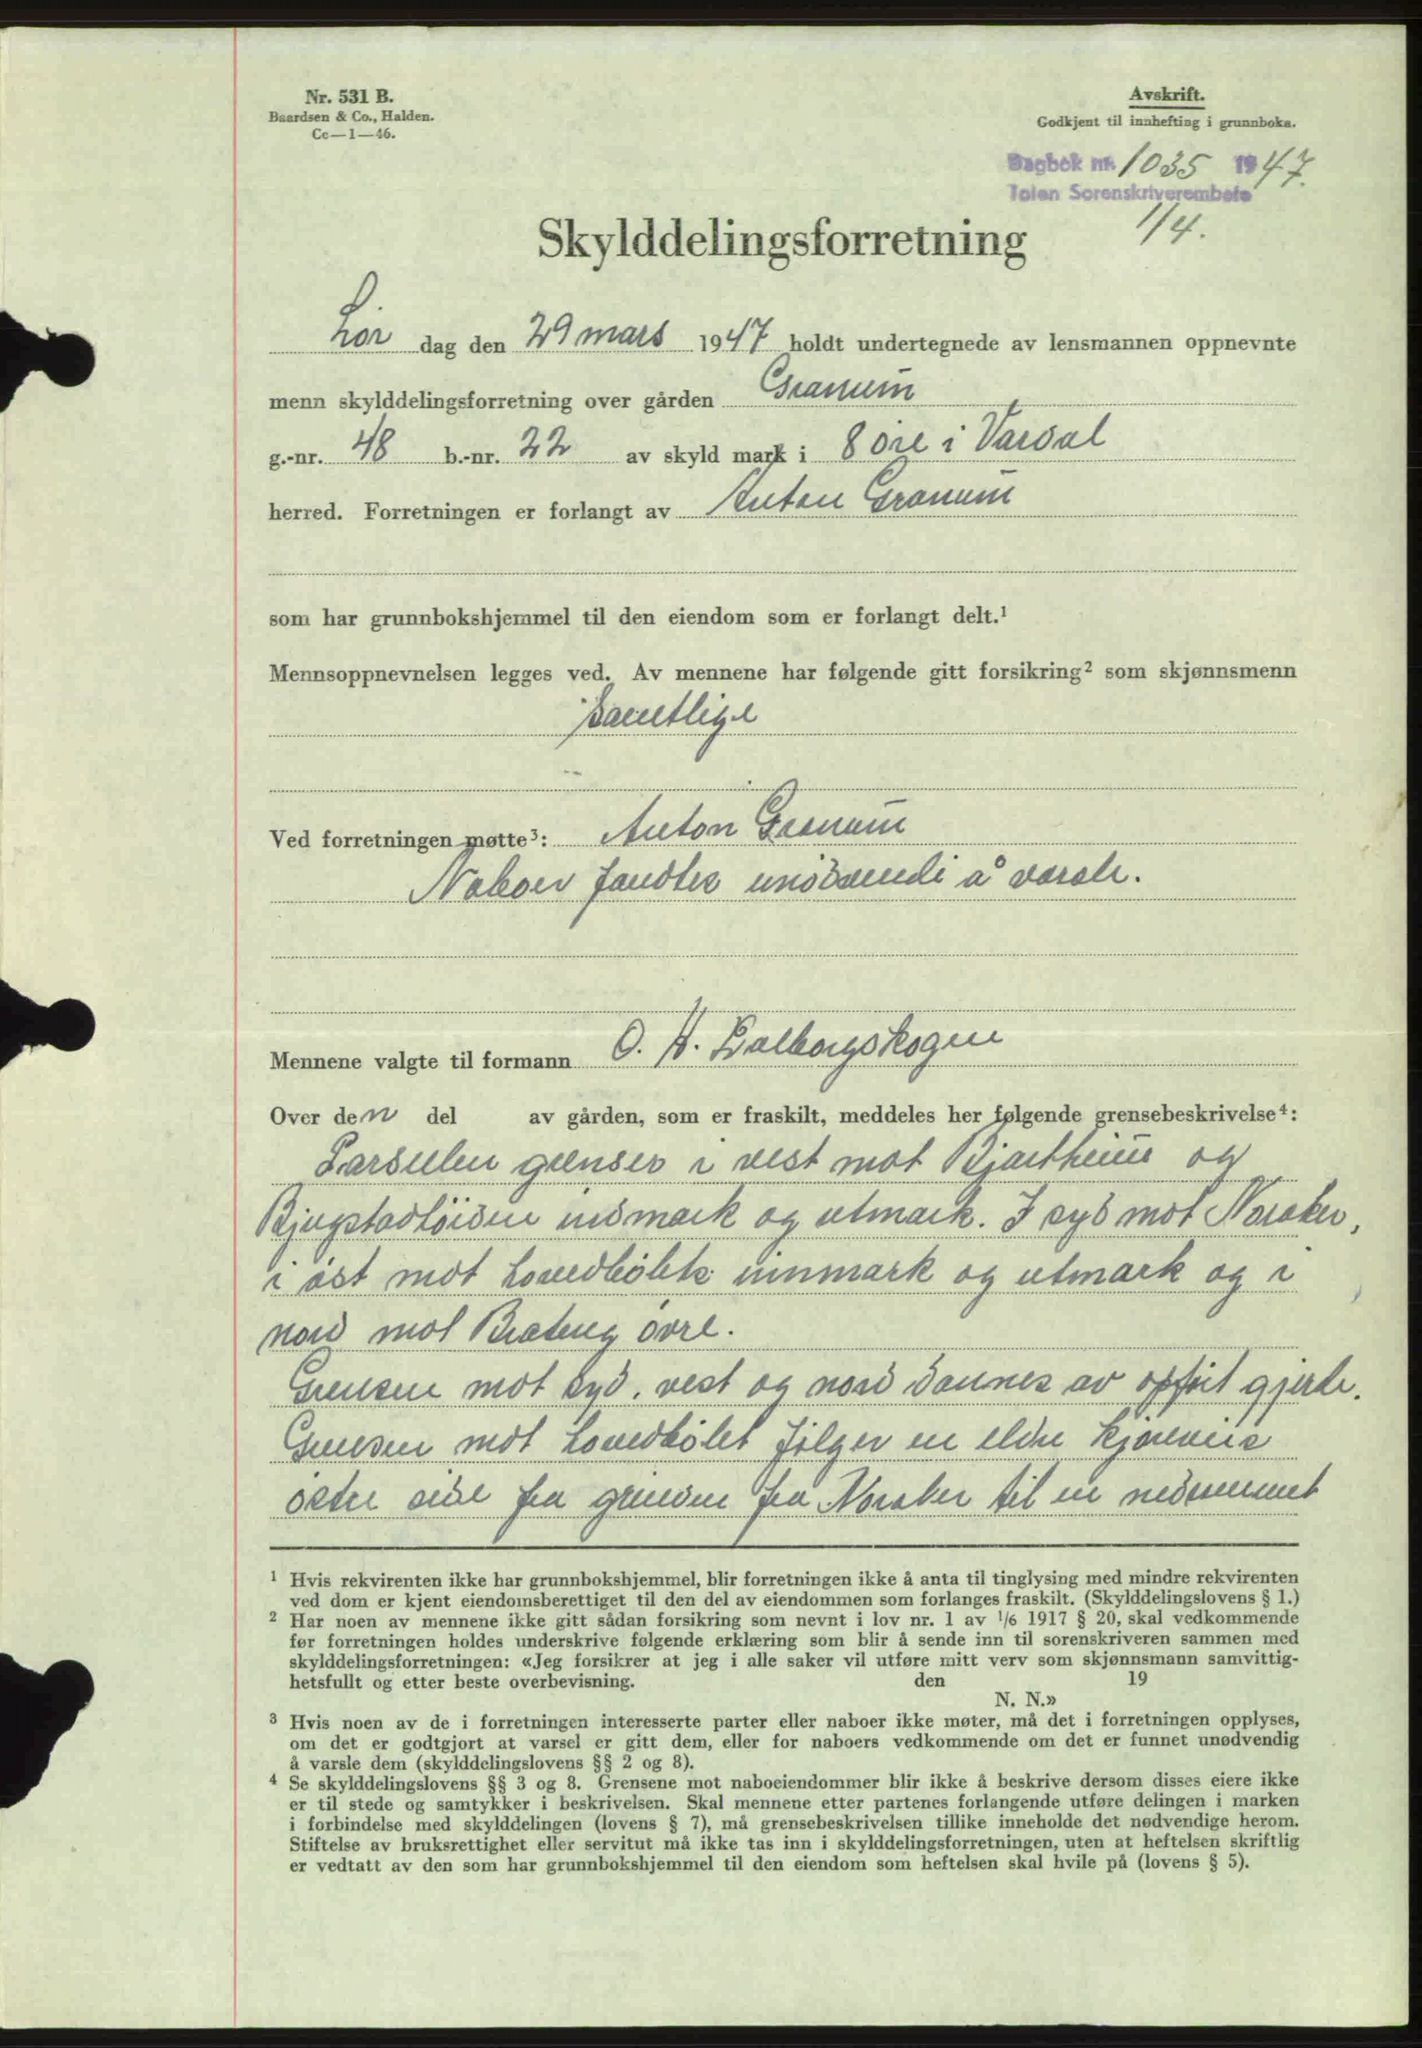 Nr. 531 B.
Baardsen & Co., Halden.
Ce—1—46.
Avskrift.
Godkjent til innhefting i grunnboka.
Dagbok nr. 1035 1947.
Toten Sorenskriverembete
1/4.
Skylddelingsforretning
Lör dag den 29 mars 1947 holdt undertegnede av lensmannen oppnevnte
menn skylddelingsforretning over gården Granum
g.-nr. 48 b.-nr. 22 av skyld mark i 8 øre i Vardal
herred. Forretningen er forlangt av Anton Granum
som har grunnbokshjemmel til den eiendom som er forlangt delt.¹
Mennsoppnevnelsen legges ved. Av mennene har følgende gitt forsikring² som skjønnsmenn
Samtlige
Ved forretningen møtte³: Anton Granum
Naboer fandtes unödvendi å varsle.
Mennene valgte til formann O. H. Dalborgskogen
Over den del av gården, som er fraskilt, meddeles her følgende grensebeskrivelse⁴:
Parsellen grenser i vest mot Bjartheim og
innmark og utmark. I syd mot Noraker,
i øst mot innmark og utmark og i
nord mot Brateng övre.
Grensen mot syd, vest og nord dannes av opfört gjerde.
Grensen mot fölger en eldre kjöreveis
östre side fra grensen fra Noraker til en nedrammet
¹ Hvis rekvirenten ikke har grunnbokshjemmel, blir forretningen ikke å anta til tinglysing med mindre rekvirenten
ved dom er kjent eiendomsberettiget til den del av eiendommen som forlanges fraskilt. (Skylddelingslovens § 1.)
² Har noen av mennene ikke gitt sådan forsikring som nevnt i lov nr. 1 av 1/6 1917 § 20, skal vedkommende
før forretningen holdes underskrive følgende erklæring som blir å sende inn til sorenskriveren sammen med
skylddelingsforretningen: «Jeg forsikrer at jeg i alle saker vil utføre mitt verv som skjønnsmann samvittig-
hetsfullt og etter beste overbevisning. den 19
N. N.»
³ Hvis noen av de i forretningen interesserte parter eller naboer ikke møter, må det i forretningen opplyses,
om det er godtgjort at varsel er gitt dem, eller for naboers vedkommende om det er funnet unødvendig
å varsle dem (skylddelingslovens §§ 2 og 8).
⁴ Se skylddelingslovens §§ 3 og 8. Grensene mot naboeiendommer blir ikke å beskrive dersom disses eiere ikke
er til stede og samtykker i beskrivelsen. Skal mennene etter partenes forlangende utføre delingen i marken
i forbindelse med skylddelingen (lovens § 7), må grensebeskrivelsen tillike inneholde det nødvendige herom.
Stiftelse av bruksrettighet eller servitut må ikke tas inn i skylddelingsforretningen, uten at heftelsen skriftlig
er vedtatt av den som har grunnbokshjemmel til den eiendom som heftelsen skal hvile på (lovens § 5).